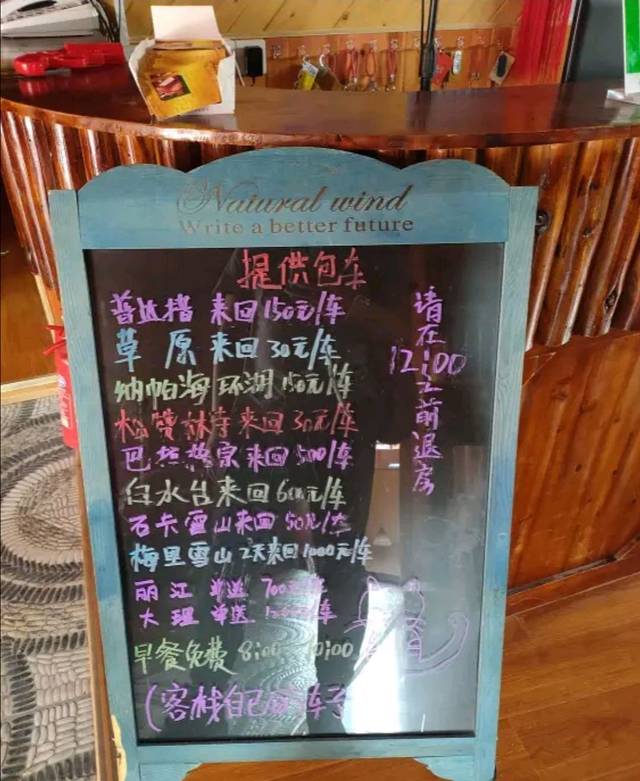 Natural wind
Write a better future
提供包车
普达措 来回150元/车
草原 来回30元/车
纳帕海环湖150元/车
松赞林寺来回30元/车
巴拉格宗来回500/车
白水台来回600元/车
石卡雪山来回50元/车
梅里雪山 2天来回1000元/车
丽江 单送 700元/车
大理 单送 车
早餐免费 8:00-10:00
(客栈自己 车子
请在
12:00
之前退房